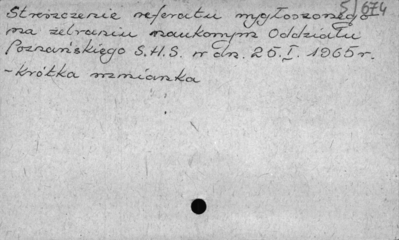 5/674
Streszczenie referatu wygłoszonego
na zebraniu naukowym Oddziału
Poznańskiego S.H.S. w dn. 25.I. 1965 r.
- krótka wzmianka